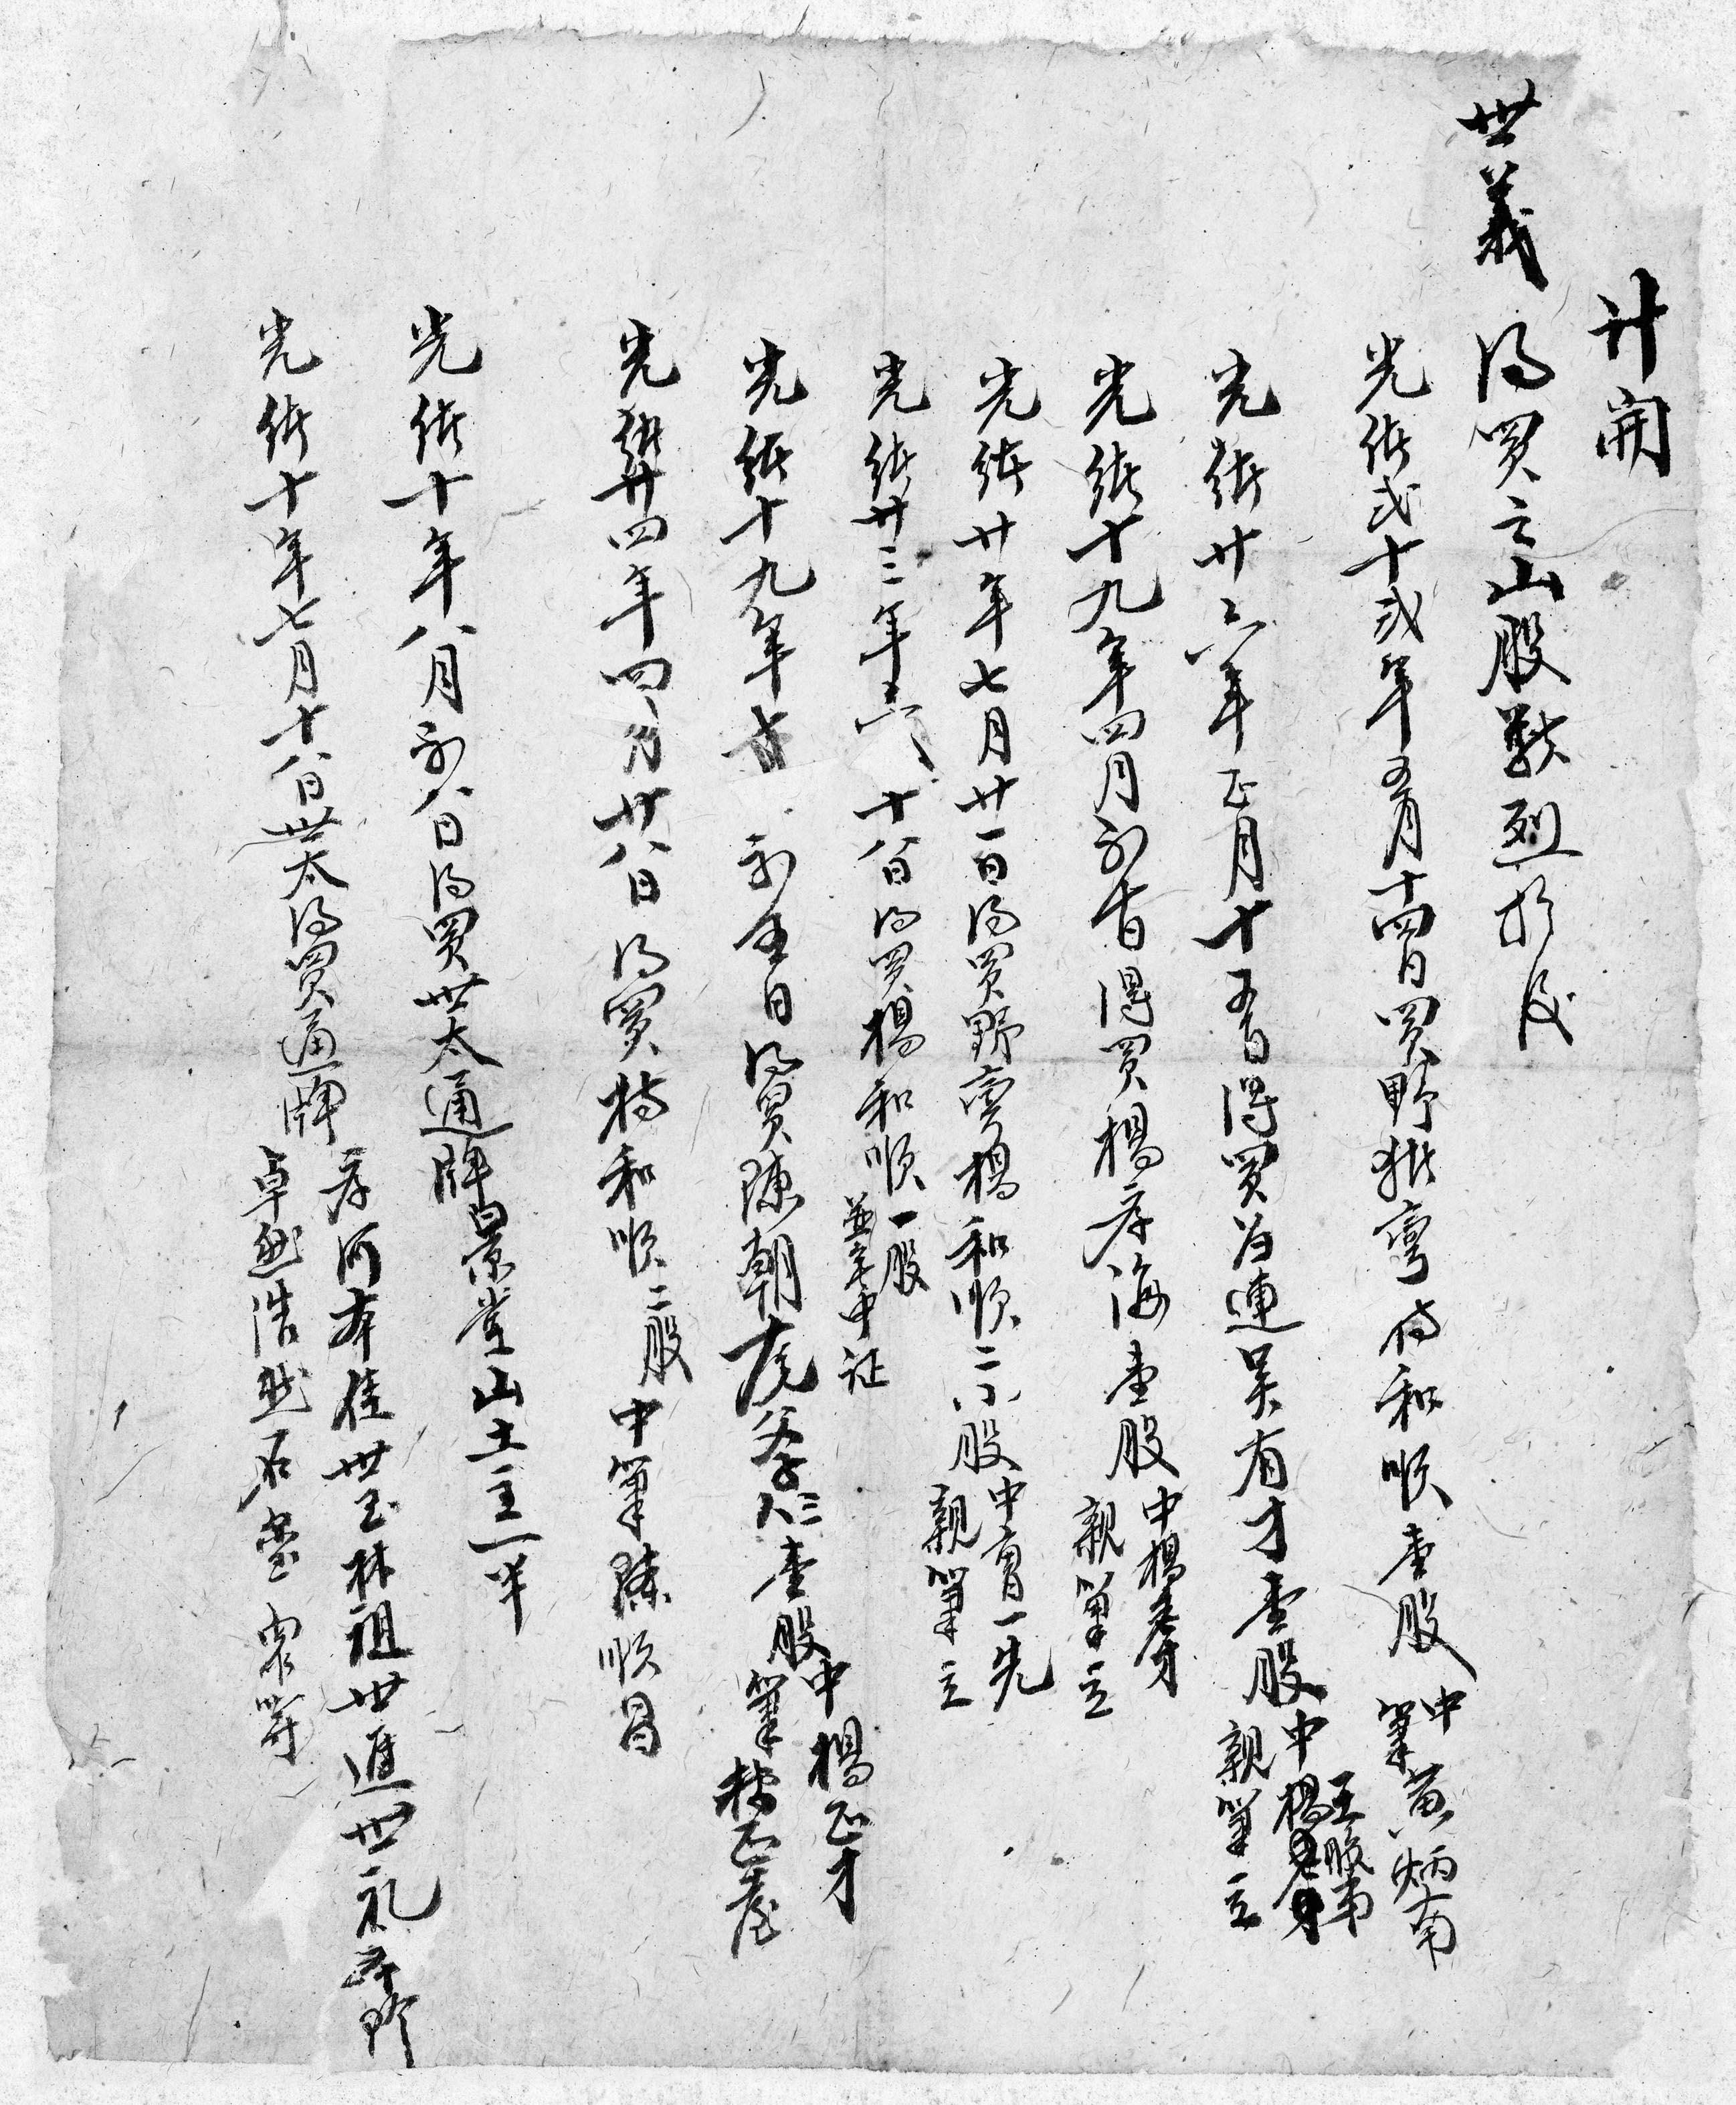 計開
世義得買之山股數列於後
光緒弍十弍年五月十四日買野 彎 和順壹股 中筆黃炳南
光緒廿六年正月十五日得買 連吳有才壹股 中 王
親筆立
光緒十九年四月初 日得買楊序海壹股 中楊秀才
親筆立
光緒廿年七月廿一日得買野彎楊和順二小股 中 一先
親筆立
光緒廿三年六 十八日得買楊和順一股
並 中証
光緒十九年 初五日得買陳朝虎爺孫三人壹股 中楊正才
筆
光緒廿四年四月廿八日得買楊和順二股 中筆陳順昌
光緒十年八月初八日得買世太通牌景堂山土主一半
光緒十年七月十八日世太得買通牌
序河本佳世玉林祖世進世礼
卓然浩然石 等